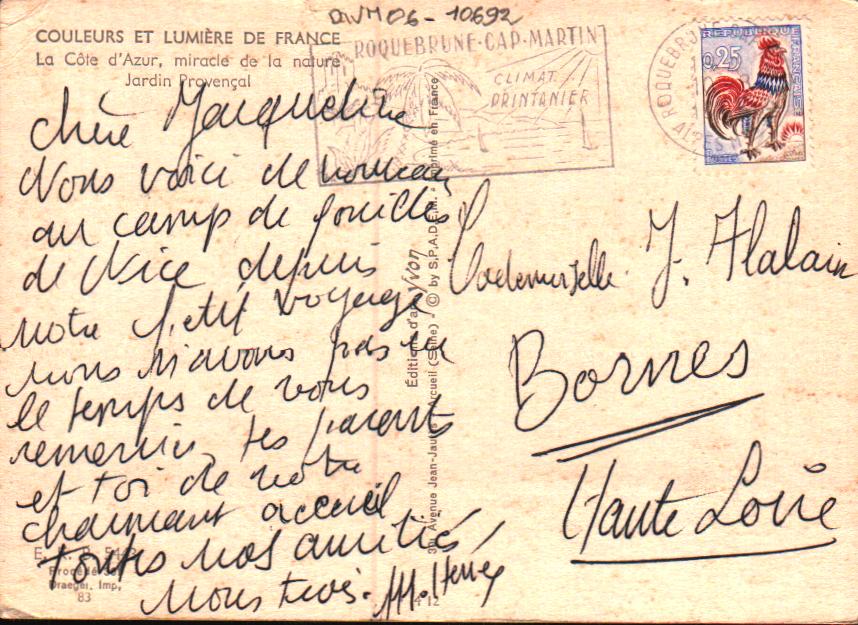 DVM06-10692
COULEURS ET LUMIÈRE DE FRANCE
La Côte d'Azur, miracle de la nature
Jardin Provençal
ROQUEBRUNE-CAP-MARTIN
CLIMAT
PRINTANIER
REPUBLIQUE FRANÇAISE
0,25
POSTES
ROQUEBR
chère Jacqueline
Nous voici de nouveau
au camp de fouilles
de Nice depuis
notre petit voyage
nous n'avons pas eu
le temps de vous
remercier, tes parents
et toi de votre
charmant accueil
toutes nos amitiés
nous trois.
Mademoiselle J. Halain
Bornes
Haute Loire
Editions d'art yvon
© by S.P.A.D.E.M. Imprimé en France
Avenue Jean-Jaurès Arcueil (Seine)
Draeger, Imp.
83